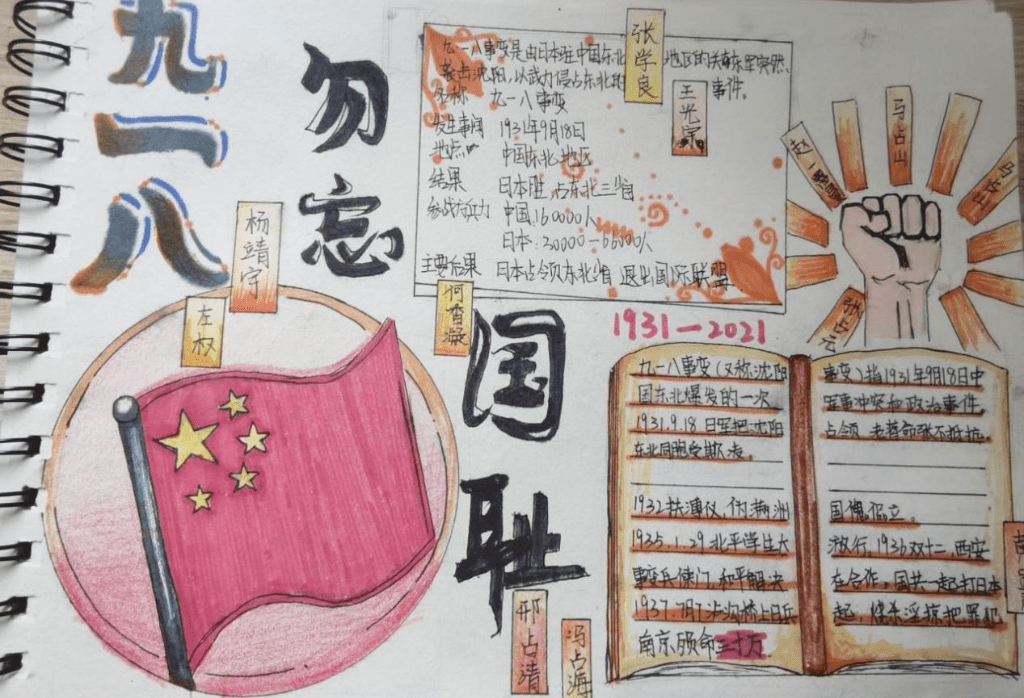 九一八
勿忘
国耻
杨靖宇
左权
张学良
王光宗
何香凝
九一八事变是由日本驻中国东北地区的关东军突然
袭占沈阳,以武力侵占东北的事件。
名称 九一八事变
发生事间 1931年9月18日
地点 中国东北地区
结果 日本胜,占东北三省
参战方兵力 中国:160000人
日本:30000—66500人
主要后果 日本占领东北省 退出国际联盟
赵一曼
马占山
吕正山
张占元
1931—2021
九一八事变(又称沈阳
国东北爆发的一次
1931.9.18 日军把沈阳
东北同胞受欺凌。
1932扶溥仪,伪满洲
1935.1.29 北平学生大
事变兵使门,和平解决
1937.7月7 卢沟桥上日兵
南京殒命三十万
事变)指1931年9月18日中
军事冲突和政治事件
占领,老蒋命张不抵抗。
国傀儡立。
游行,1936双十二,西安
在合作,国共一起打日本
起,烧杀淫掠把罪犯
邢占清
冯占海